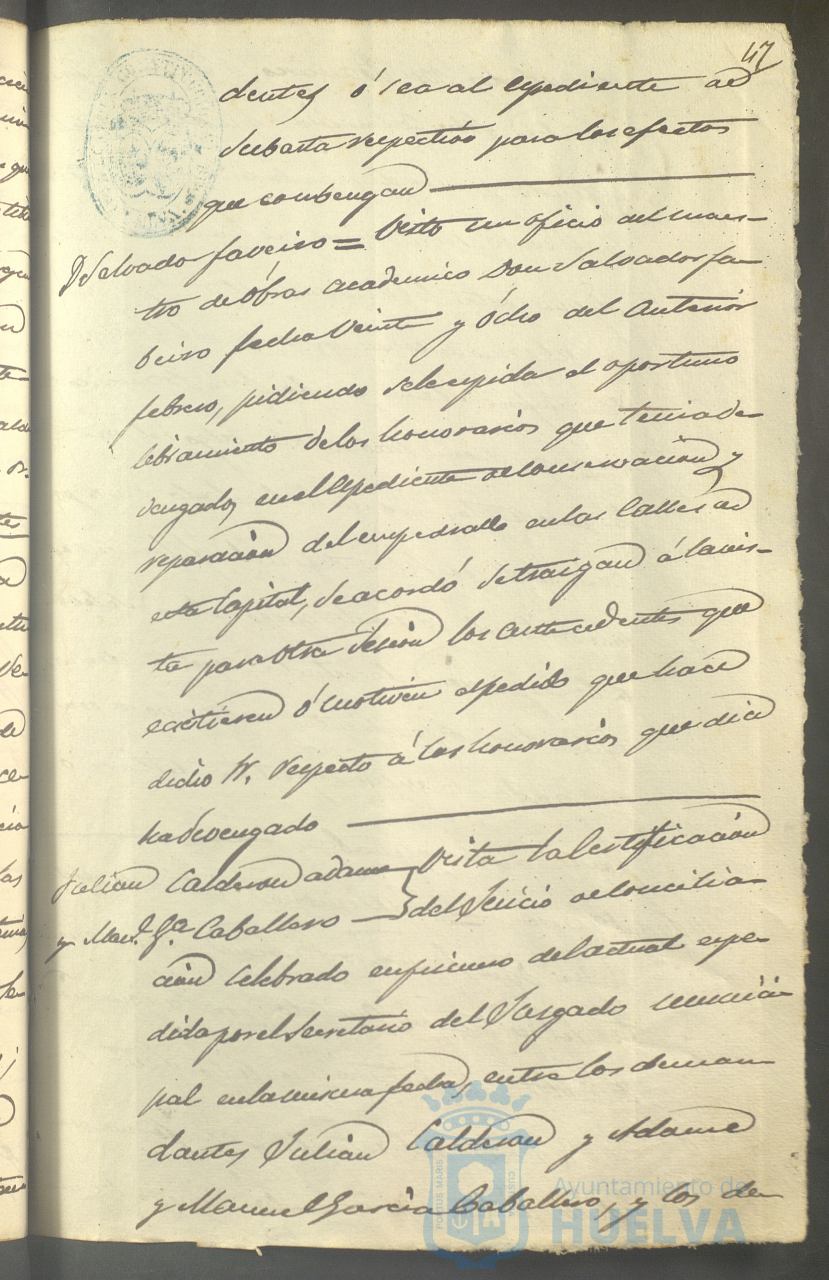 47
dentes ó sea al espediente de
subasta respectivo para los efectos
que conbengan
D Salvador Faveiro = Visto un oficio del maes-
tro de óbras academico Don Salvador Fa-
veiro fecha veinte y ócho del anteriór
febrero, pidiendo se le espida el oportuno
libramiento de los honorarios que tenia de-
vengados, en el Espediente de conservacion y
reparación del empedrado en las Calles de
esta Capital, se acordó se traigan á la vis-
ta para otra sesion los antecedentes que
ecsistieren ó motiven el pedido que hace
dicho Sr. respecto á los honorarios que dice
ha devengado
Julian Calderon Adame Vista la Certificación
y Man.l G.a Caballero del Juicio de concilia-
ción celebrado en primero del actual espe-
dida por el Secretario del Juzgado munici-
pal en la misma fecha, entre los deman-
dantes Julian Calderon y Adame
y Manuel Garcia Caballero, y los de-
PORTUS MARIS
CUSTODIA
Ayuntamiento de
HUELVA